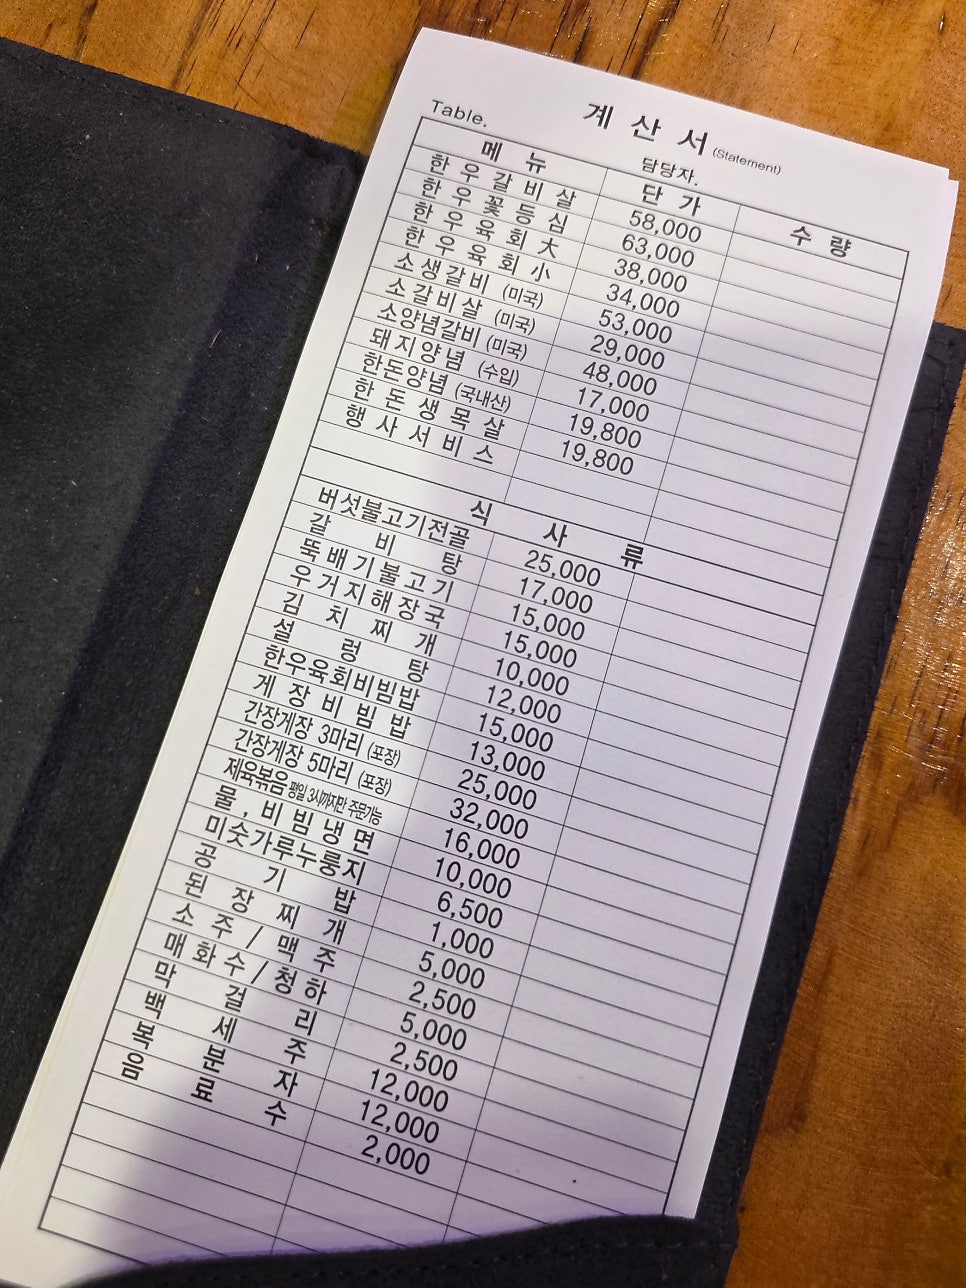 계 산 서 (Statement)
Table. 담당자.
메 뉴 단 가 수 량
한 우 갈 비 살 58,000
한 우 꽃 등 심 63,000
한 우 육 회 大 38,000
한 우 육 회 小 34,000
소 생 갈 비 (미국) 53,000
소 갈 비 살 (미국) 29,000
소양념갈비 (미국) 48,000
돼 지 양 념 (수입) 17,000
한돈양념 (국내산) 19,800
한 돈 생 목 살 19,800
행 사 서 비 스
식 사 류
버섯불고기전골 25,000
갈 비 탕 17,000
뚝 배 기 불 고 기 15,000
우 거 지 해 장 국 15,000
김 치 찌 개 10,000
설 렁 탕 12,000
한우육회비빔밥 15,000
게 장 비 빔 밥 13,000
간장게장 3마리 (포장) 25,000
간장게장 5마리 (포장) 32,000
제육볶음 평일 3시까지만 주문가능 16,000
물 , 비 빔 냉 면 10,000
미숫가루누룽지 6,500
공 기 밥 1,000
된 장 찌 개 5,000
소 주 / 맥 주 2,500
매 화 수 / 청 하 5,000
막 걸 리 2,500
백 세 주 12,000
복 분 자 12,000
음 료 수 2,000